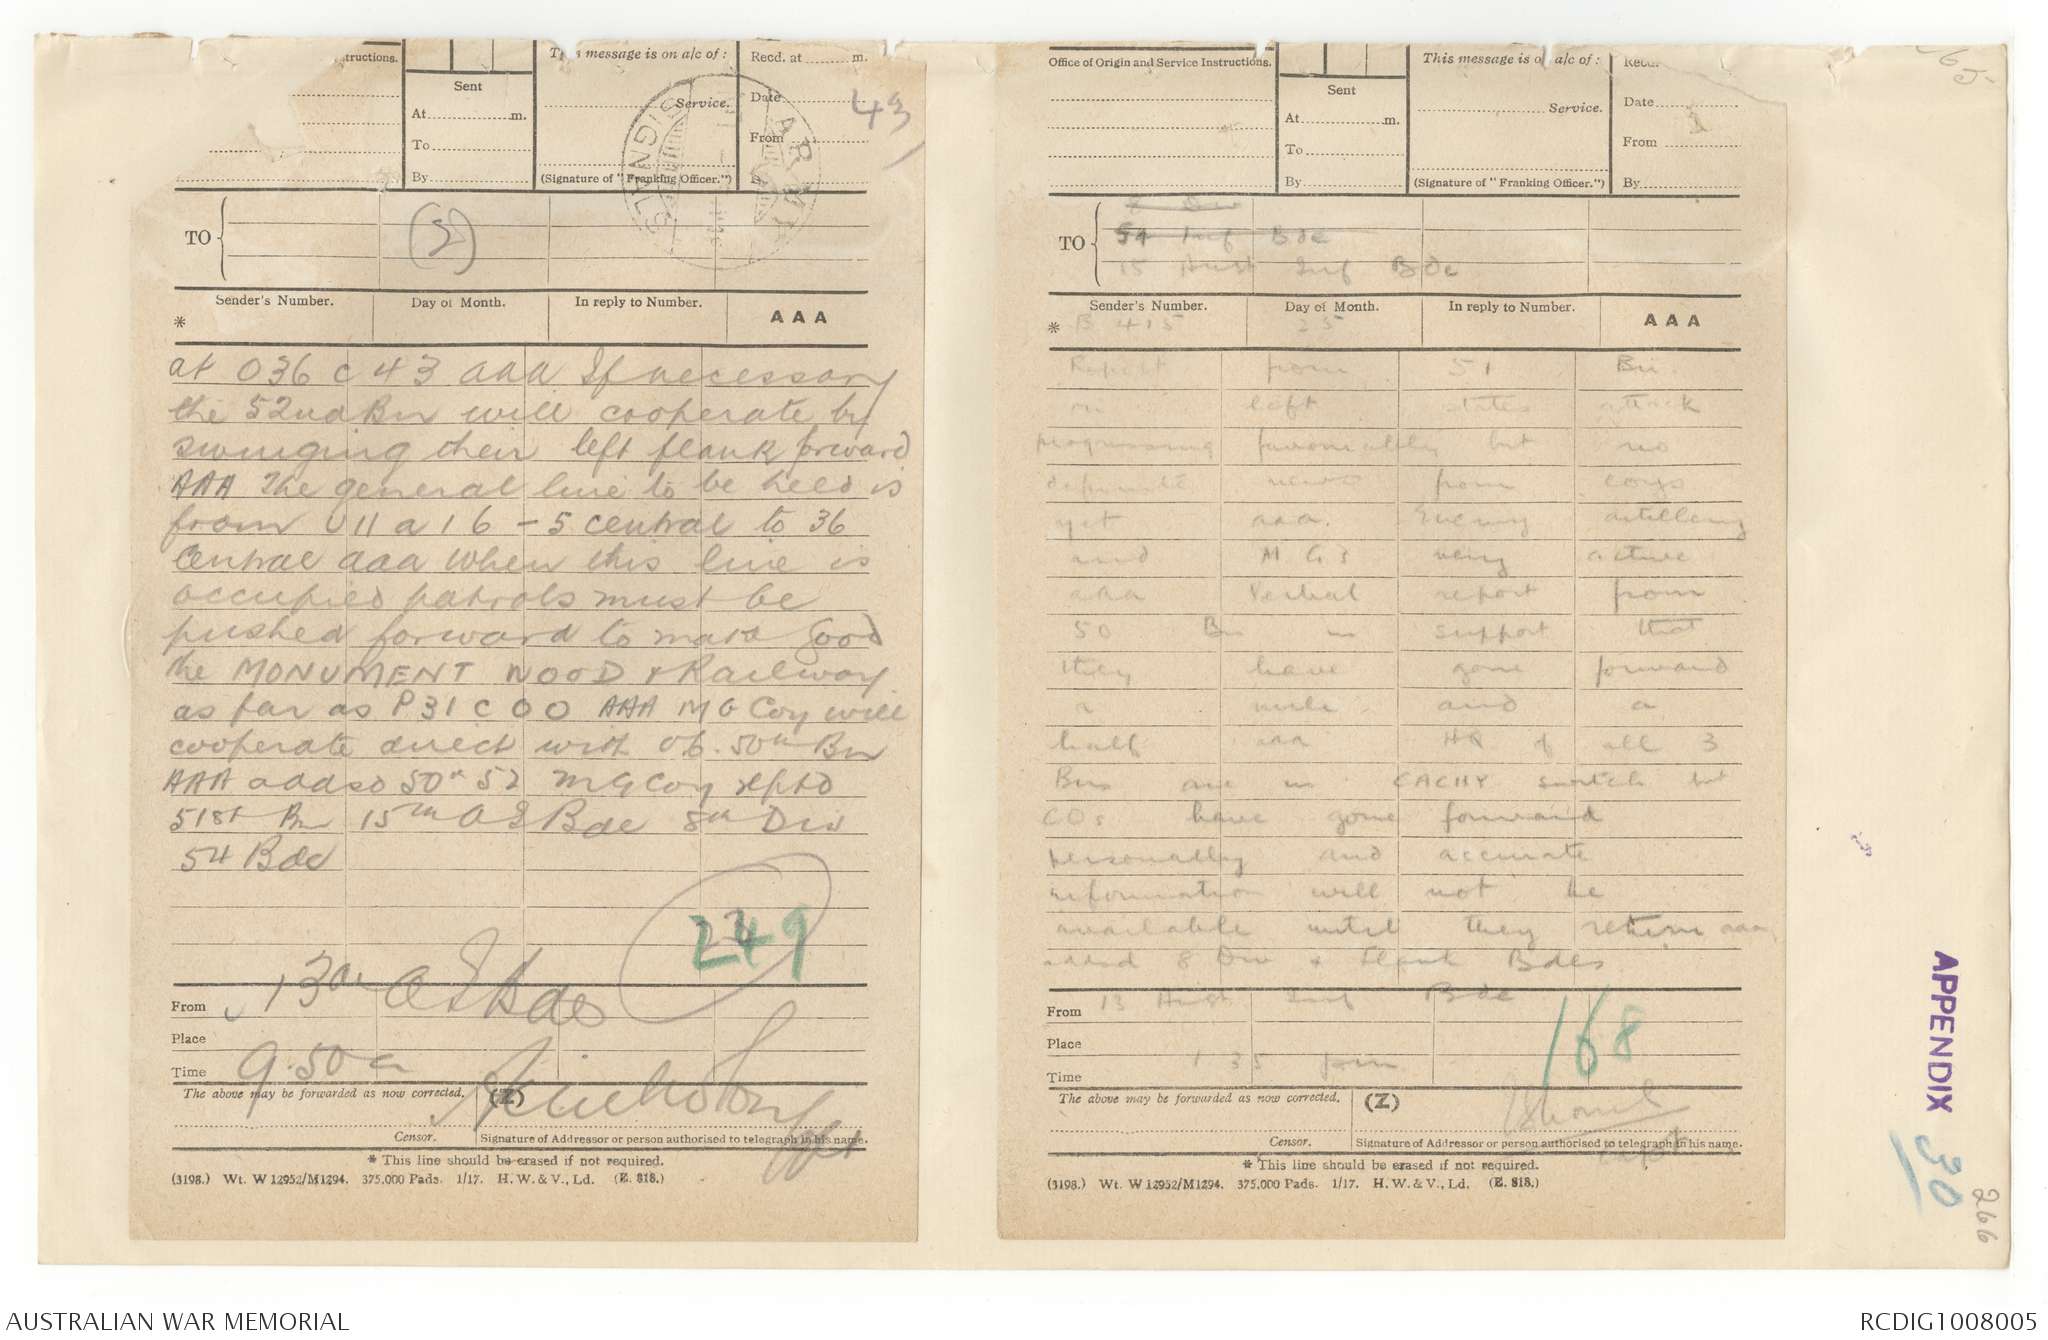 tructions.
Sent
At m.
To
By
This message is on a/c of :
Service.
(Signature of "Franking Officer.")
Recd. at m.
Date
From
43
ARMY SIGNALS
TO
(2)
Sender's Number.
Day of Month.
In reply to Number.
AAA
*
at O36 c 43 aaa If necessary
the 52nd Bn will cooperate by
swinging their left flank forward
AAA The general line to be held is
from U11 a 16 - 5 central to 36
central aaa When this line is
occupied patrols must be
pushed forward to make good
the MONUMENT WOOD & Railway
as far as P31 C 00 AAA MG Coy will
cooperate direct with 50th Bn
AAA addsd 50th 52 MG Coy reptd
51st Bn 15th A I Bde 8th Div
54 Bde
249
From 13th A I Bde
Place
Time 9.50 a
The above may be forwarded as now corrected.
(Z)
Censor.
Signature of Addressor or person authorised to telegraph in his name.
* This line should be erased if not required.
(3198.) Wt. W 12952/M1294. 375,000 Pads. 1/17. H. W. & V., Ld. (E. 818.)
Office of Origin and Service Instructions.
Sent
At m.
To
By
This message is on a/c of :
Service.
(Signature of "Franking Officer.")
Recd.
Date
From
By
TO
8 Div
54 Inf Bde
15 Aust Inf Bde
Sender's Number.
Day of Month.
In reply to Number.
AAA
* B 415 25
Report from 51 Bn
on left states attack
progressing favourably but no
definite news from coys
yet aaa. Enemy artillery
and M G s very active
aaa Verbal report from
50 Bn in support that
they have gone forward
a mile and a
half aaa HQ of all 3
Bns are in CACHY switch but
COs have gone forward
personally and accurate
information will not be
available until they return aaa
addsd 8 Div & Flank Bdes
From 13 Aust Inf Bde
Place
Time 1 35 pm
168
The above may be forwarded as now corrected.
(Z)
Capt
Censor.
Signature of Addressor or person authorised to telegraph in his name.
* This line should be erased if not required.
(3198.) Wt. W 12952/M1294. 375,000 Pads. 1/17. H. W. & V., Ld. (E. 818.)
APPENDIX 30
266
AUSTRALIAN WAR MEMORIAL
RCDIG1008005